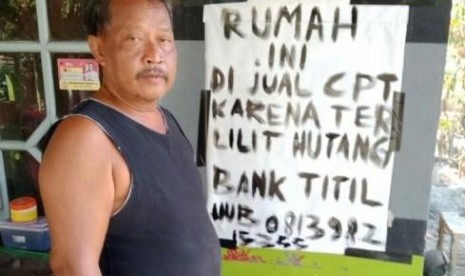 RUMAH
INI
DI JUAL CPT
KARENA TER
LILIT HUTANG
BANK TITIL
HUB 0813982
15255